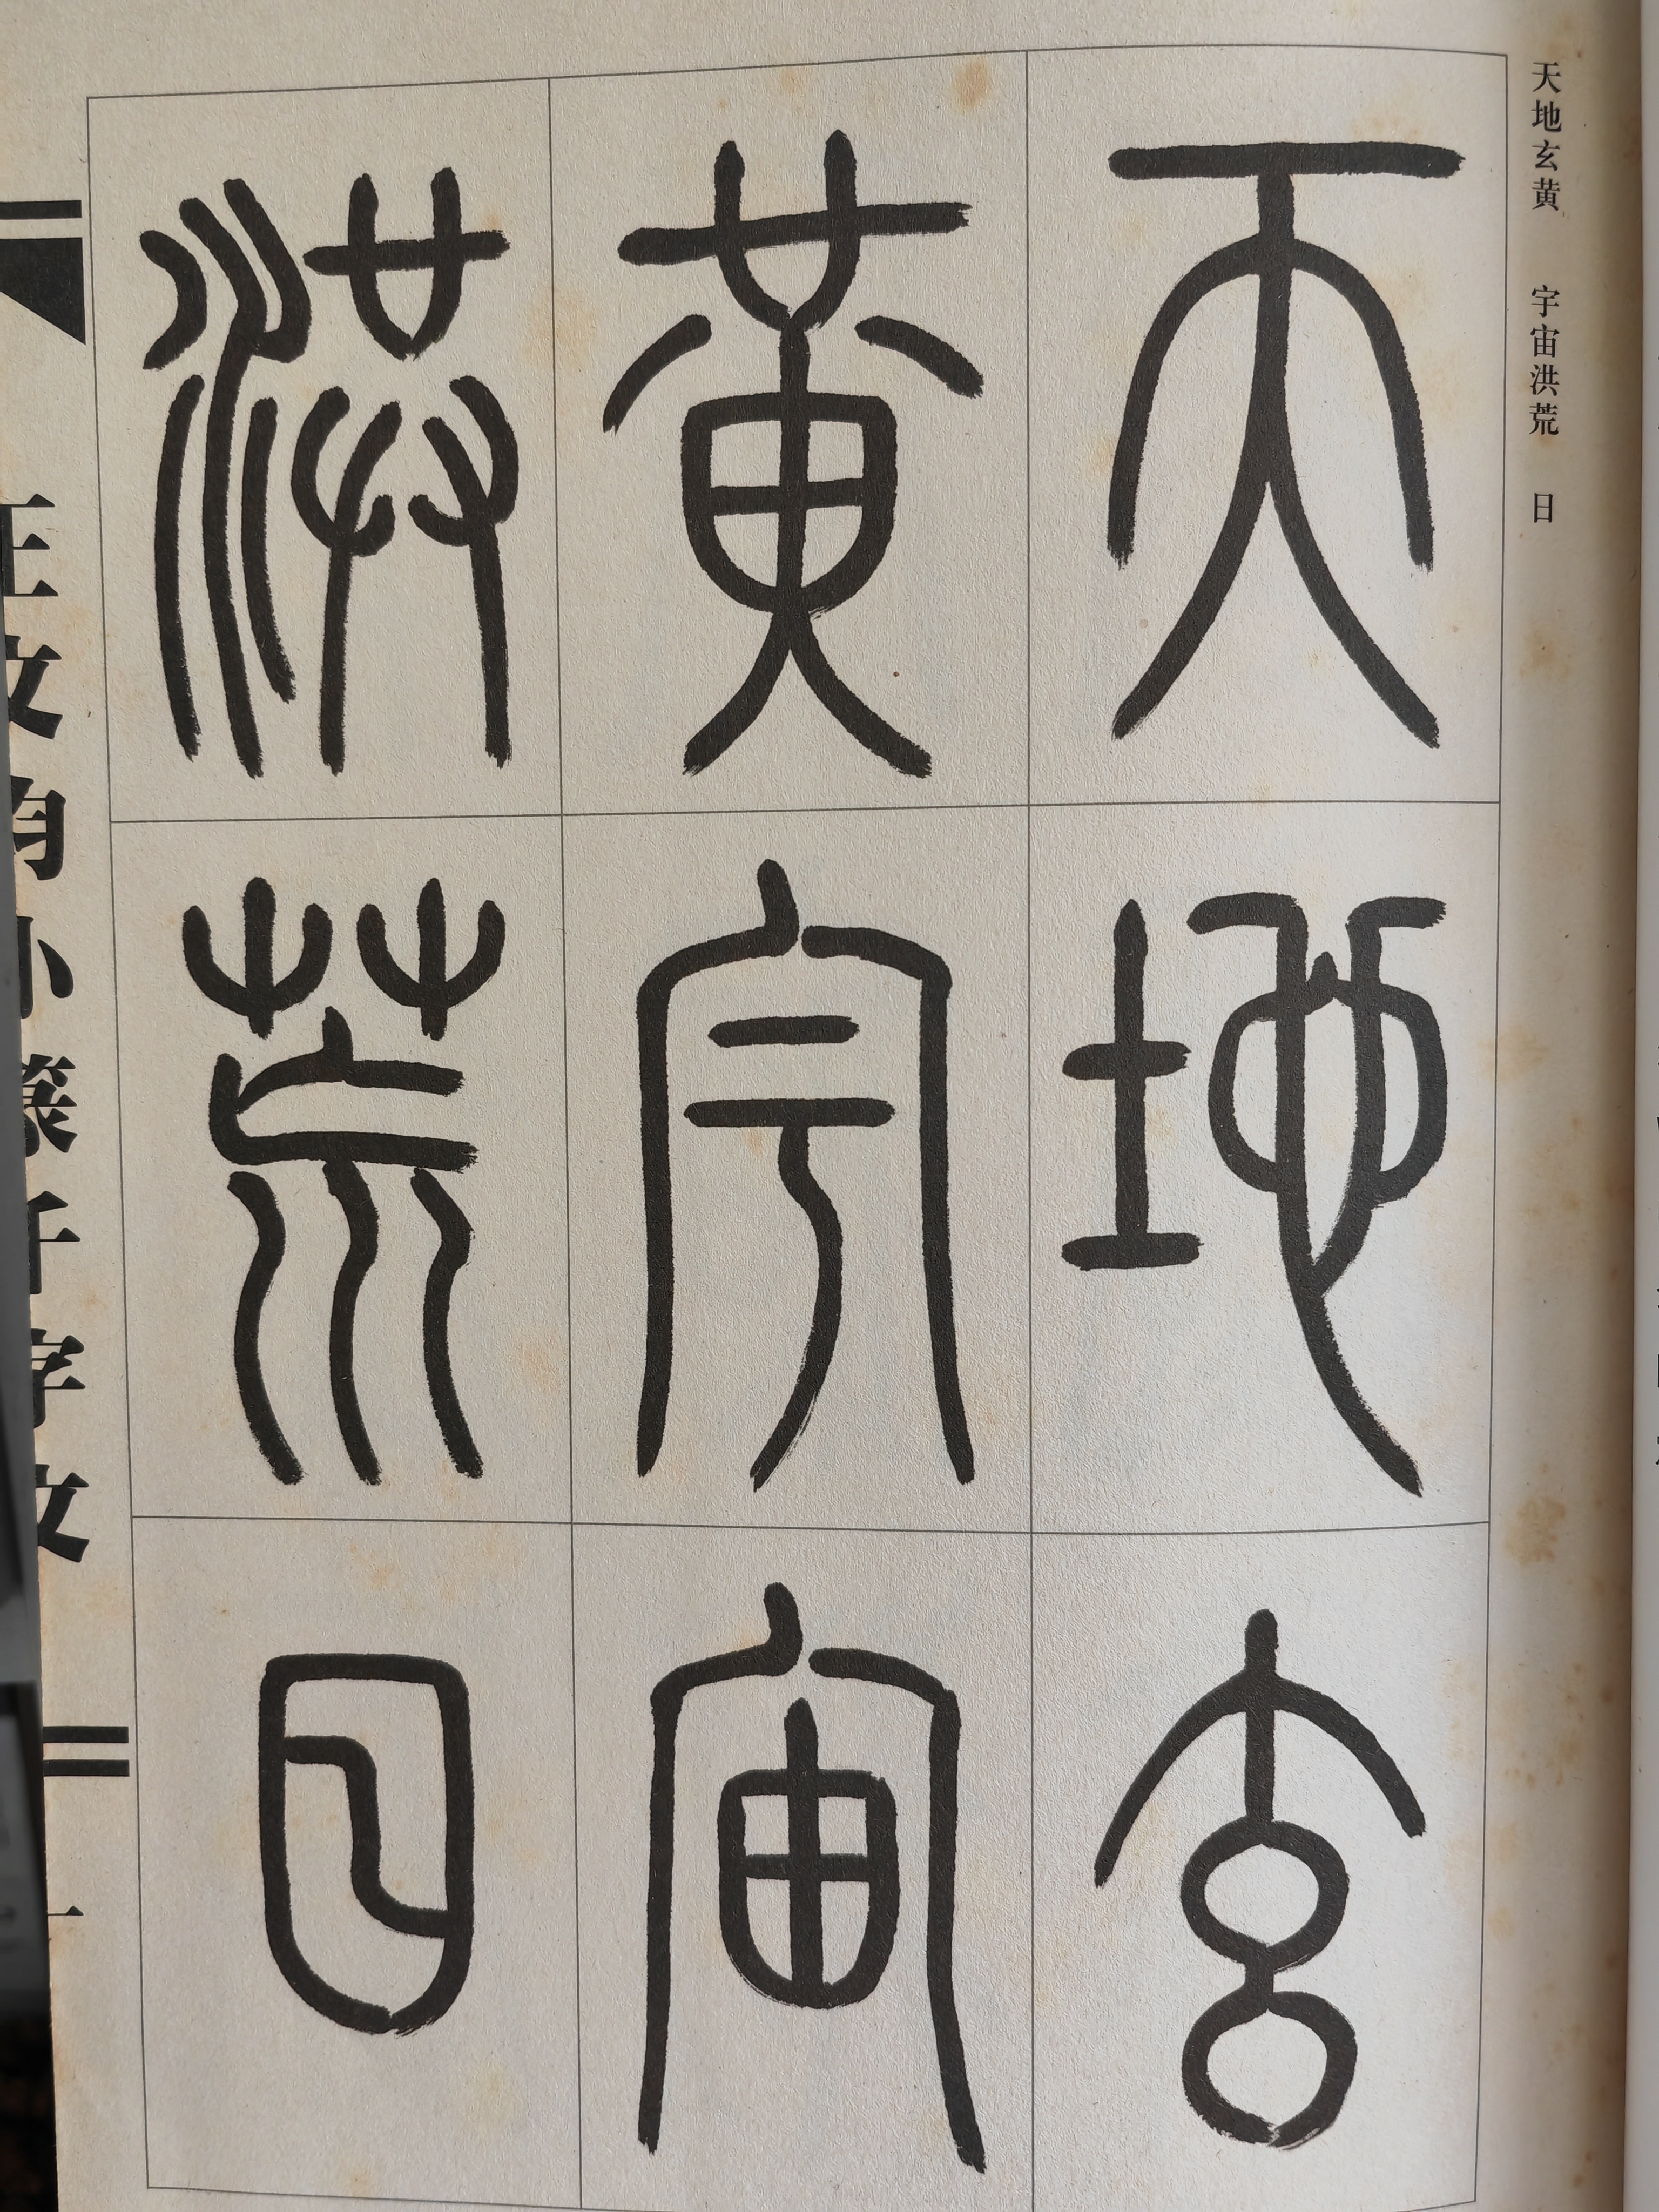 天地玄黄 宇宙洪荒 日
天地玄
黄宇宙
洪荒日
王文均小篆千字文
一